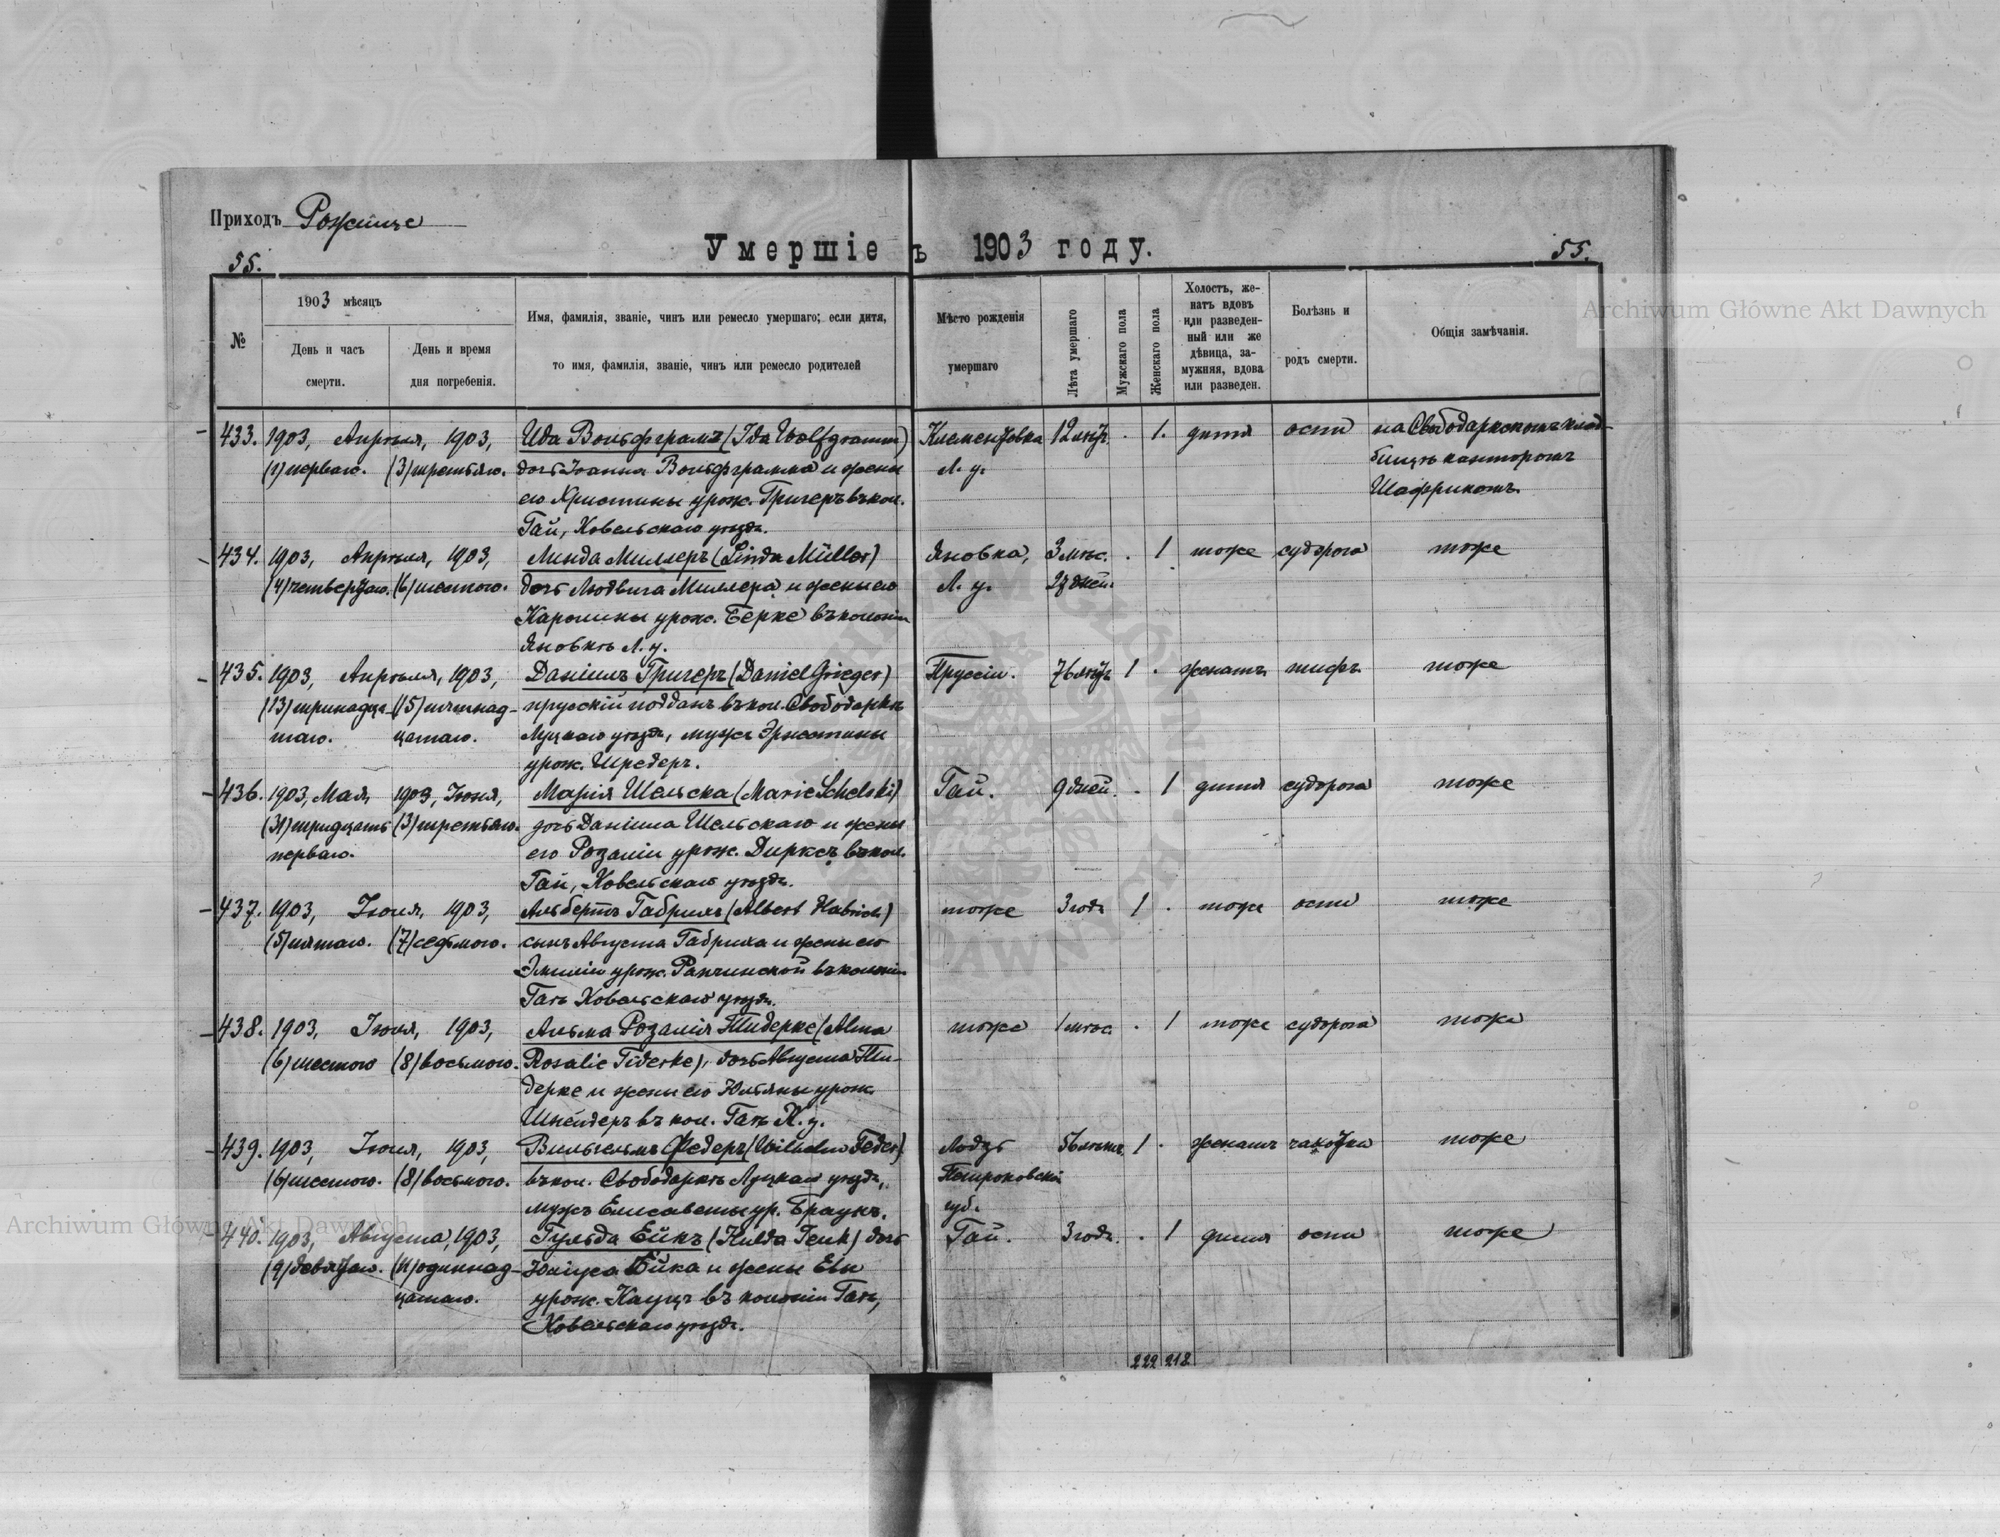 Приходъ Рожище
Умершіе въ 1903 году.
55.
55.
№
1903 мѣсяцъ
День и часъ смерти.
День и время дня погребенія.
Имя, фамилія, званіе, чинъ или ремесло умершаго; если дитя,
то имя, фамилія, званіе, чинъ или ремесло родителей
Мѣсто рожденія
умершаго
Лѣта умершаго
Мужскаго пола
Женскаго пола
Холостъ, же-
натъ вдовъ
или разведен-
ный или же
дѣвица, за-
мужняя, вдова
или разведен.
Болѣзнь и
родъ смерти.
Общія замѣчанія.
Archiwum Główne Akt Dawnych
433. 1903, Апрѣля, 1903, Ида Вольфграмъ (Ida Wolfgramm) Клементовка 12 лѣтъ . 1. дитя оспа на Свободарскомъ клад-
(1) перваго. (3) третьяго. дочь Іоанна Вольфграмма и жены Л. у. бищѣ канторомъ
его Христины урож. Григеръ въ кол. Шаффрикомъ.
Гай, Ковельскаго уѣзда.
434. 1903, Апрѣля, 1903, Линда Миллеръ (Linda Müller) Яновка, 3 мѣс. . 1 тоже судорога тоже
(4) четвертаго. (6) шестого. дочь Людвига Миллера и жены его Л. у. 27 дней.
Каролины урож. Берке въ колоніи
Яновкѣ Л. у.
435. 1903, Апрѣля, 1903, Даніилъ Григеръ (Daniel Grieger) Пруссіи. 76 лѣтъ 1 . женатъ тифъ тоже
(13) тринадца- (15) пятнад- прусскій поддан. въ кол. Свободаркѣ
таго. цатаго. Луцкаго уѣзда, мужъ Эрнестины
урож. Шредеръ.
436. 1903, Мая, 1903, Іюня, Марія Шельска (Marie Schelski) Гай. 9 дней. . 1 дитя судорога тоже
(31) тридцать (3) третьяго. дочь Даніила Шельскаго и жены
перваго. его Розаліи урож. Дирксъ въ кол.
Гай, Ковельскаго уѣзда.
437. 1903, Іюня, 1903, Альбертъ Габрихъ (Albert Habrich) тоже 3 года 1 . тоже оспа тоже
(5) пятаго. (7) седьмого. сынъ Августа Габриха и жены его
Эмиліи урож. Рапчинской въ колоніи
Гаѣ Ковельскаго уѣзда.
438. 1903, Іюня, 1903, Альма Розалія Тидерке (Alma тоже 1 мѣс. . 1 тоже судорога тоже
(6) шестого (8) восьмого. Rosalie Tiderke), дочь Августа Ти-
дерке и жены его Юльяны урож.
Шнейдеръ въ кол. Гаѣ К. у.
439. 1903, Іюня, 1903, Вильгельмъ Федеръ (Wilhelm Feder) Лодзь 56 лѣтъ 1 . женатъ чахотка тоже
(6) шестого. (8) восьмого. въ кол. Свободаркѣ Луцкаго уѣзда, Петроковской
мужъ Елисаветы ур. Браунъ. губ.
440. 1903, Августа, 1903, Гульда Ейкъ (Hulda Jeuk) дочь Гай. 3 года. . 1 дитя оспа тоже
(9) девятаго. (11) одиннад- Юліуса Ейка и жены Евы
цатаго. урож. Кауцъ въ колоніи Гаѣ,
Ковельскаго уѣзда.
222 218
Archiwum Główne Akt Dawnych